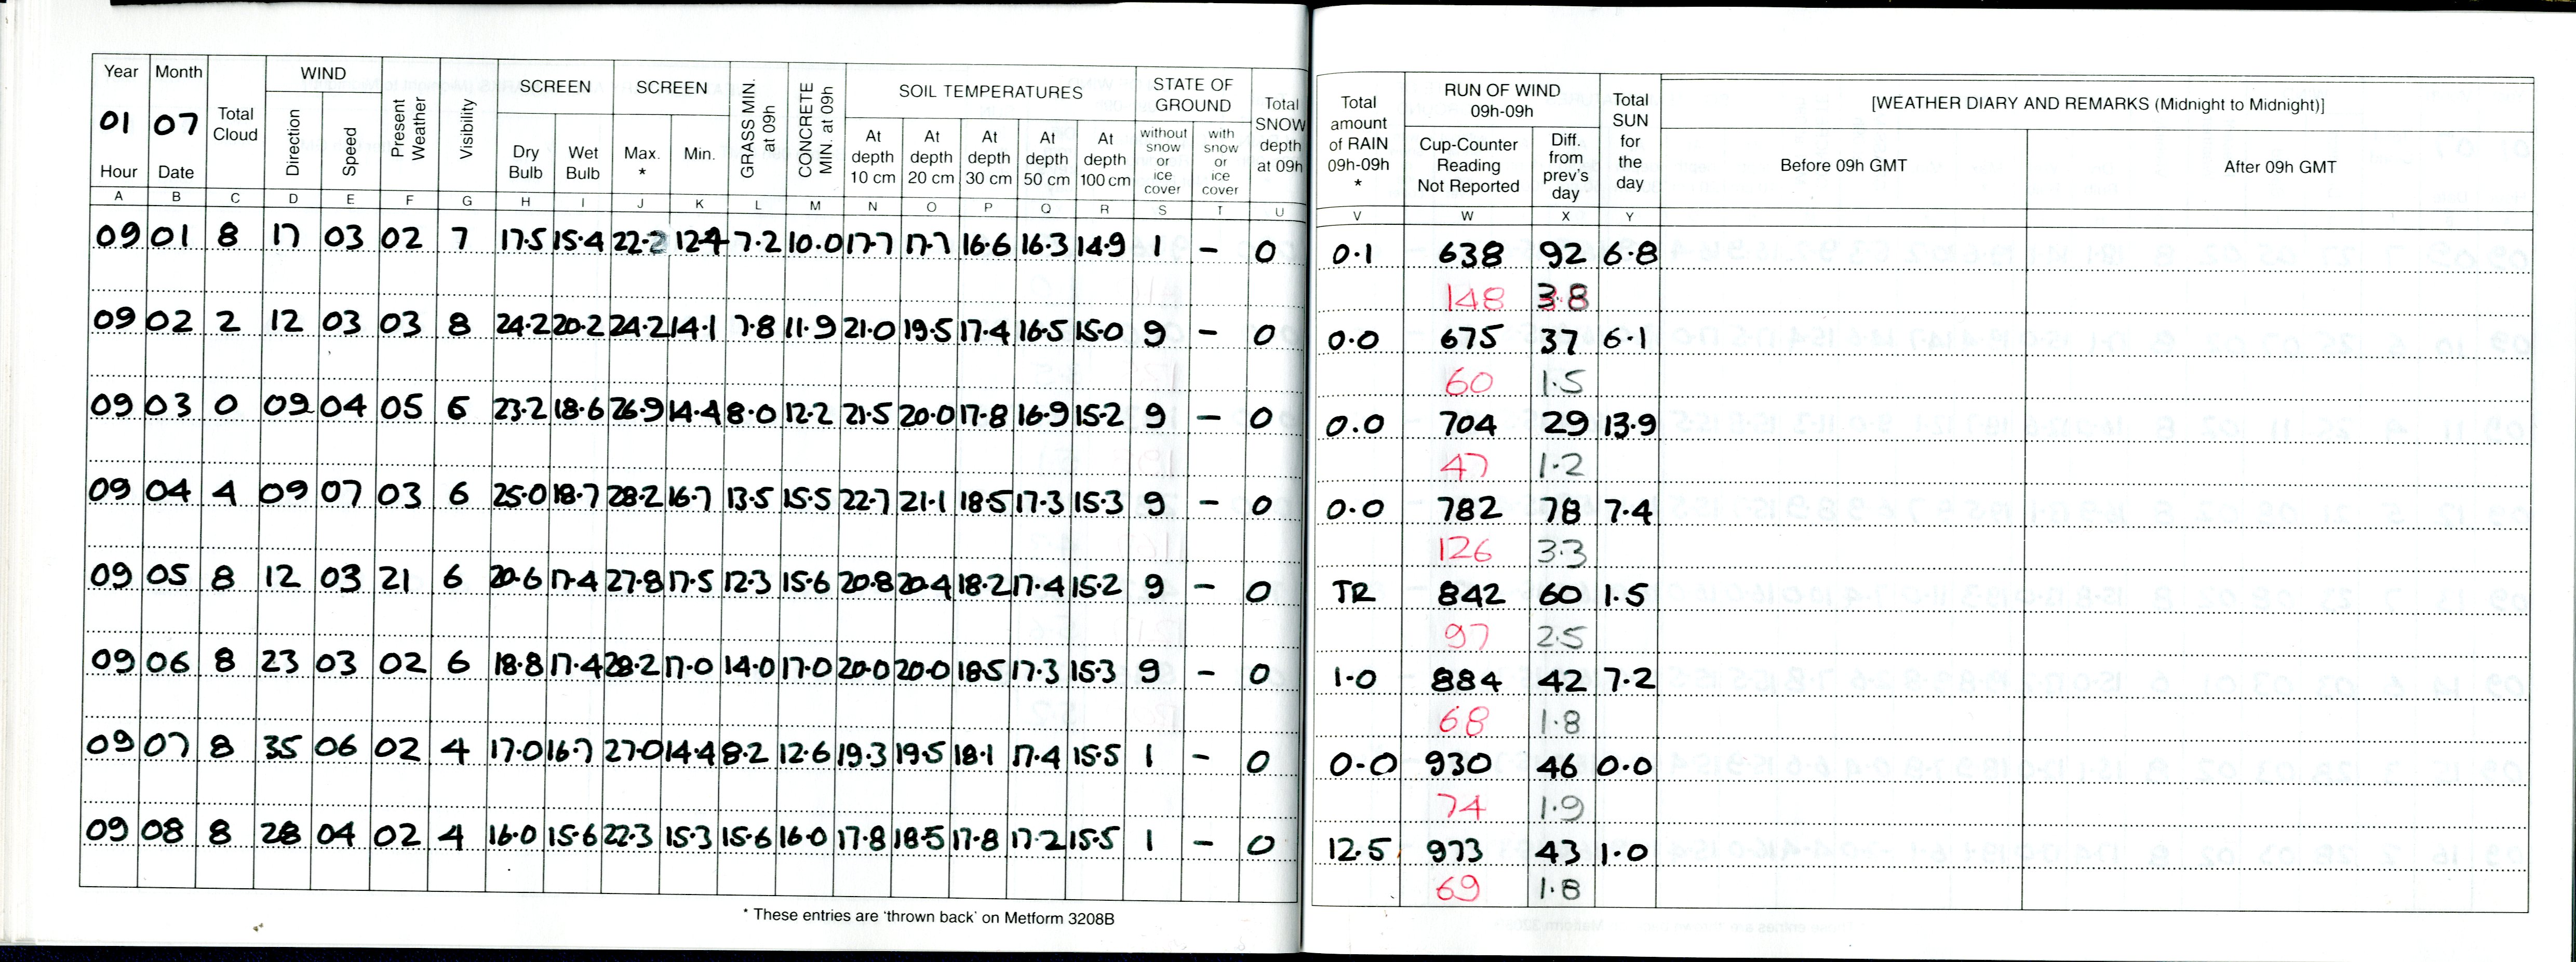 Year Month Total Cloud WIND Present Weather Visibility SCREEN SCREEN GRASS MIN. at 09h CONCRETE MIN. at 09h SOIL TEMPERATURES STATE OF GROUND Total SNOW depth at 09h Total amount of RAIN 09h-09h * RUN OF WIND 09h-09h Total SUN for the day [WEATHER DIARY AND REMARKS (Midnight to Midnight)]
01 07 Direction Speed Dry Bulb Wet Bulb Max. * Min. At depth 10 cm At depth 20 cm At depth 30 cm At depth 50 cm At depth 100 cm without snow or ice cover with snow or ice cover Cup-Counter Reading Not Reported Diff. from prev's day Before 09h GMT After 09h GMT
Hour Date
A B C D E F G H I J K L M N O P Q R S T U V W X Y
09 01 8 17 03 02 7 17.5 15.4 22.2 12.4 7.2 10.0 17.7 17.7 16.6 16.3 14.9 1 - 0 0.1 638 92 6.8
148 3.8
09 02 2 12 03 03 8 24.2 20.2 24.2 14.1 7.8 11.9 21.0 19.5 17.4 16.5 15.0 9 - 0 0.0 675 37 6.1
60 1.5
09 03 0 09 04 05 6 23.2 18.6 26.9 14.4 8.0 12.2 21.5 20.0 17.8 16.9 15.2 9 - 0 0.0 704 29 13.9
47 1.2
09 04 4 09 07 03 6 25.0 18.7 28.2 16.7 13.5 15.5 22.7 21.1 18.5 17.3 15.3 9 - 0 0.0 782 78 7.4
126 3.3
09 05 8 12 03 21 6 20.6 17.4 27.8 17.5 12.3 15.6 20.8 20.4 18.2 17.4 15.2 9 - 0 TR 842 60 1.5
97 2.5
09 06 8 23 03 02 6 18.8 17.4 28.2 17.0 14.0 17.0 20.0 20.0 18.5 17.3 15.3 9 - 0 1.0 884 42 7.2
68 1.8
09 07 8 35 06 02 4 17.0 16.7 27.0 14.4 8.2 12.6 19.3 19.5 18.1 17.4 15.5 1 - 0 0.0 930 46 0.0
74 1.9
09 08 8 28 04 02 4 16.0 15.6 22.3 15.3 15.6 16.0 17.8 18.5 17.8 17.2 15.5 1 - 0 12.5 973 43 1.0
69 1.8
* These entries are 'thrown back' on Metform 3208B